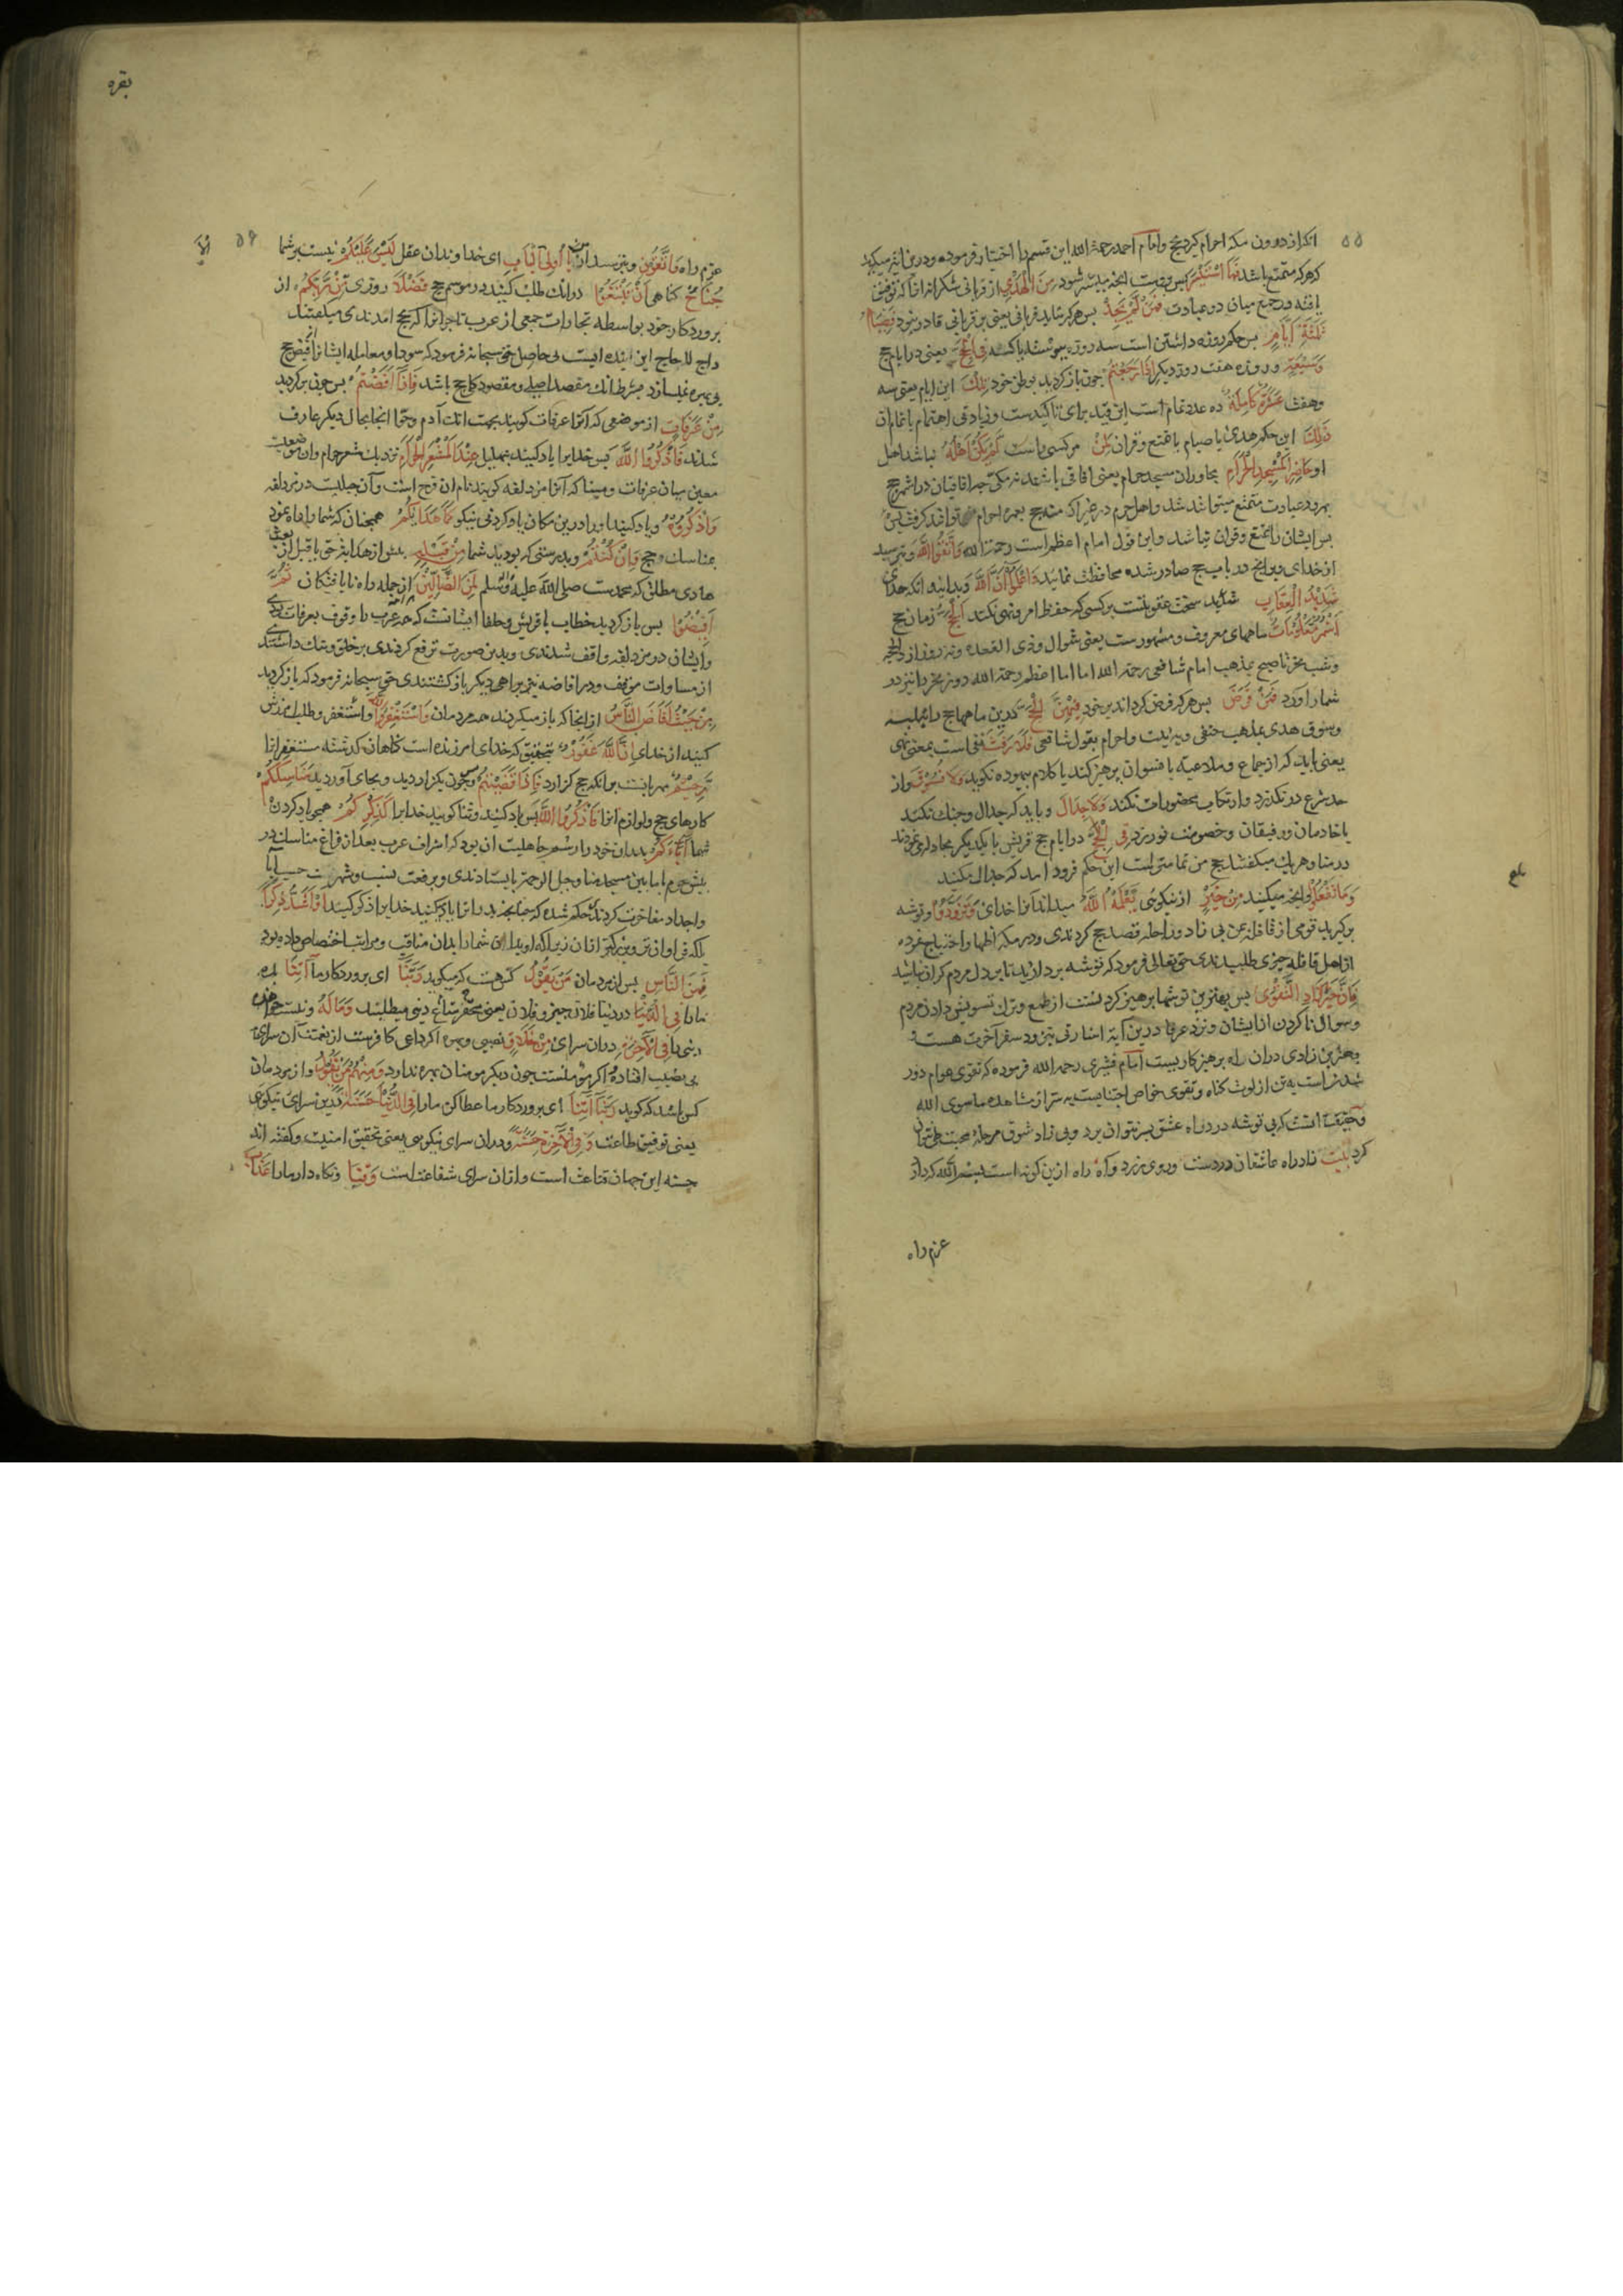 ۵۵
انکه از درون مکه احرام کیرد بحج وامام احمد رحمة الله این قسم را اختیار فرموده ودرین ایه میکوید
که هرکه متمتع باشد فَمَا اسْتَيْسَرَ پس برویست انچه میسر شود مِنَ الْهَدْيِ از قربانی شکرانه انرا که توفیق
یافته در جمع میان دو عبادت فَمَنْ لَمْ يَجِدْ پس هرکه نیابد قربانی یعنی بر قربانی قادر نبود فَصِيَامُ
ثَلٰثَةِ اَيَّامٍ پس حکم روزه داشتن است سه روز پیوسته یا کسسته فِی الْحَجِّ یعنی در ایام حج
وَسَبْعَةٍ وروزه هفت روز دیکر اِذَا رَجَعْتُمْ چون باز کردید بوطن خود تِلْكَ این ایام یعنی سه
وهفت عَشَرَةٌ كَامِلَةٌ ده عدد تمام است این قید برای تاکیدست وزیادتی اهتمام باتمام ان
ذٰلِكَ این حکم هدی یا صیام یا تمتع وقران لِمَنْ مر کسی راست لَمْ يَكُنْ اَهْلُهُ نباشد اهل
او حَاضِرِي الْمَسْجِدِ الْحَرَامِ مجاوران مسجد حرام یعنی افاقی باشند نه مکی چه افاقیان در اشهر حج
بهر دو عبادت متمتع میتوانند شد واهل حرم در غیر اشهر حج بعمره احرام توانند کرفت پس
بر ایشان تمتع وقران نباشد واین قول امام اعظم است رحمة الله وَاتَّقُوا اللّٰهَ وبترسید
از خدای در انچه در باب حج صادر شده محافظت نمائید وَاعْلَمُوا اَنَّ اللّٰهَ وبدانید انکه خدای
شَدِيدُ الْعِقَابِ شدید سخت عقوبتست بر کسی که حفظ امر ونهی نکند اَلْحَجُّ زمان حج
اَشْهُرٌ مَعْلُومَاتٌ ماههای معروف ومشهورست یعنی شوال وذی القعده ونه روز از ذی الحجه
وشب نحر تا صبح بمذهب امام شافعی رحمة الله اما امام اعظم رحمة الله روز نحر را نیز در
شمار اورد فَمَنْ فَرَضَ پس هرکه فرض کرداند بر خود فِيهِنَّ الْحَجَّ درین ماهها حج را بتلبیه
وسوق هدی بمذهب حنفی وبنیت واحرام بقول شافعی فَلَا رَفَثَ نفی است بمعنی نهی
یعنی باید که از جماع وملاعبه با نسوان پرهیز کند یا کلام بیهوده نکوید وَلَا فُسُوقَ واز
حد شرع در نکذرد وارتکاب محظورات نکند وَلَا جِدَالَ وباید که جدال وجنک نکند
با خادمان ورفیقان وخصومت نورزد فِی الْحَجِّ در ایام حج قریش با یکدیکر مجادله می نمودند
در منا وهر یک میکفتند حج من تمامترست این حکم فرود امد که جدال مکنید
وَمَا تَفْعَلُوا وانچه میکنید مِنْ خَيْرٍ از نیکویی يَعْلَمْهُ اللّٰهُ میداند انرا خدای وَتَزَوَّدُوا وتوشه
برکیرید قومی از قافله یمن بی زاد وراحله قصد حج کردندی ودر مکه اظهار احتیاج نموده
از اهل قافله چیزی طلبیدندی حق تعالی فرمود که توشه بردارید تا بر دل مردم کران نباشید
فَاِنَّ خَيْرَ الزَّادِ التَّقْوٰى پس بهترین توشها پرهیز کردنست از طمع وترک تشویش دادن مردم
وسوال ناکردن از ایشان ونزد عرفا درین آیه اشارتی بتزود سفر آخرت هست
بهترین زادی دران راه پرهیز کاریست امام قشیری رحمه الله فرموده که تقوی عوام دور
شدنست بتن از لوث کناه وتقوی خواص اجتنابست بسر از مشاهده ماسوی الله
وحقیقت انست که بی توشه در راه عشق بسر نتوان برد وبی زاد شوق مرحله محبت طی نتوان
کرد بیت زاد راه عاشقان دردست وروی زرد وآه راه ازین کونه است بسم الله کر داری
عزم راه
بلغ
بقره
۵۶
عزم راه وَاتَّقُونِ وبترسید از من يَا اُولِي الْاَلْبَابِ ای خداوندان عقل لَيْسَ عَلَيْكُمْ نیست بر شما
جُنَاحٌ کناهی اَنْ تَبْتَغُوا درانک طلب کنید در موسم حج فَضْلًا روزی مِنْ رَبِّكُمْ از
پروردکار خود بواسطه تجارات جمعی از عرب تاجرانرا که بحج امدندی میکفتند
داج لا حاج این آینده ایست بی حاصل حق سبحانه فرمود که سودا ومعامله ایشانرا از فیض حج
بی بهره نمیسازد بشرط انک مقصد اصلی ومقصود کلی حج باشد فَاِذَا اَفَضْتُمْ پس چون برکردید
مِنْ عَرَفَاتٍ از موضعی که انرا عرفات کویند بجهت انک آدم وحوا انجا بحال دیکر عارف
شدند فَاذْكُرُوا اللّٰهَ پس خدایرا یاد کنید بتهلیل عِنْدَ الْمَشْعَرِ الْحَرَامِ نزدیک مشعر حرام وان موضعیست
معین میان عرفات ومینا که آنرا مزدلفه کویند نام ان قزح است وآن جبلیست در مزدلفه
وَاذْكُرُوهُ ویاد کنید اورا درین مکان یاد کردنی نیکو كَمَا هَدَاكُمْ همچنان که شما را راه نمود
بمناسک وحج وَاِنْ كُنْتُمْ وبدرستی که بودید شما مِنْ قَبْلِهِ پیش از هدایت حق یا قبل از بعثت
هادی مطلق که محمدست صلی الله علیه وسلم لَمِنَ الضَّالِّينَ از جمله راه نایافتکان ثُمَّ
اَفِيضُوا پس باز کردید خطاب با قریش وحلفا ایشانست که همه عرب را وقوف بعرفات بودی
وایشان در مزدلفه واقف شدندی وبدین صورت ترفع کردندی بر خلق وننک داشتندی
از مساوات موقف ودر افاضه نیز براهی دیکر باز کشتندی حق سبحانه فرمود که باز کردید
مِنْ حَيْثُ اَفَاضَ النَّاسُ از انجا که باز میکردند همه مردمان وَاسْتَغْفِرُوا اللّٰهَ واستغفر وطلب امرزش
کنید از خدای اِنَّ اللّٰهَ غَفُورٌ بتحقیق که خدای امرزنده است کناهان کذشته مستغفرانرا
رَحِيمٌ مهربانست بر انکه حج کزارد فَاِذَا قَضَيْتُمْ وچون بکزاردید وبجای آوردید مَنَاسِكَكُمْ
کارهای حج ولوازم انرا فَاذْكُرُوا اللّٰهَ پس یاد کنید وثنا کویید خدایرا كَذِكْرِكُمْ همچو یاد کردن
شما اٰبَاءَكُمْ پدران خود را رسم جاهلیت ان بود که اشراف عرب بعد از فراغ مناسک در
پیش حرم یا مابین مسجد منا وجبل الرحمه بایستادندی وبرفعت نسب وشهرت حسب ابا
واجداد مفاخرت کردندی حکم شد که چنانچه پدرانرا یاد میکنید خدایرا ذکر کویید اَوْ اَشَدَّ ذِكْرًا
بلکه فراوان تر وبزرکتر ازان زیراکه او پدران شما را بدان مناقب ومراتب اختصاص داده بود
فَمِنَ النَّاسِ پس از مردمان مَنْ يَقُولُ کس هست که میکوید رَبَّنَا ای پروردکار ما اٰتِنَا بده
مارا فِي الدُّنْيَا در دنیا فلان چیز وفلان یعنی محقر متاع دنیی میطلبند وَمَا لَهُ ونیست خواهنده
دنیی را فِي الْاٰخِرَةِ دران سرای مِنْ خَلَاقٍ نصیبی وبهره اکر داعی کافرست از نعمت آن سرای
بی نصیب افتاده واکر مؤمنست چون دیکر مومنان بهره ندارد وَمِنْهُمْ مَنْ يَقُولُ واز مردمان
کس باشد که کوید رَبَّنَا اٰتِنَا ای پروردکار ما عطا کن مارا فِي الدُّنْيَا حَسَنَةً درین سرای نیکویی
یعنی توفیق طاعت وَفِي الْاٰخِرَةِ حَسَنَةً ودران سرای نیکویی یعنی تحقیق امنیت وکفته اند
حسنه این جهان قناعت است وازان سرای شفاعتست وَقِنَا ونکاه دار مارا عَذَابَ